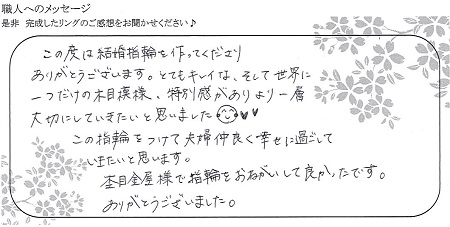 職人へのメッセージ
是非 完成したリングのご感想をお聞かせください♪
この度は結婚指輪を作ってくださり
ありがとうございます。とてもキレイな、そして世界に
一つだけの木目模様、特別感がありより一層
大切にしていきたいと思いました
この指輪をつけて夫婦仲良く幸せに過ごして
いきたいと思います。
杢目金屋様で指輪をおねがいして良かったです。
ありがとうございました。